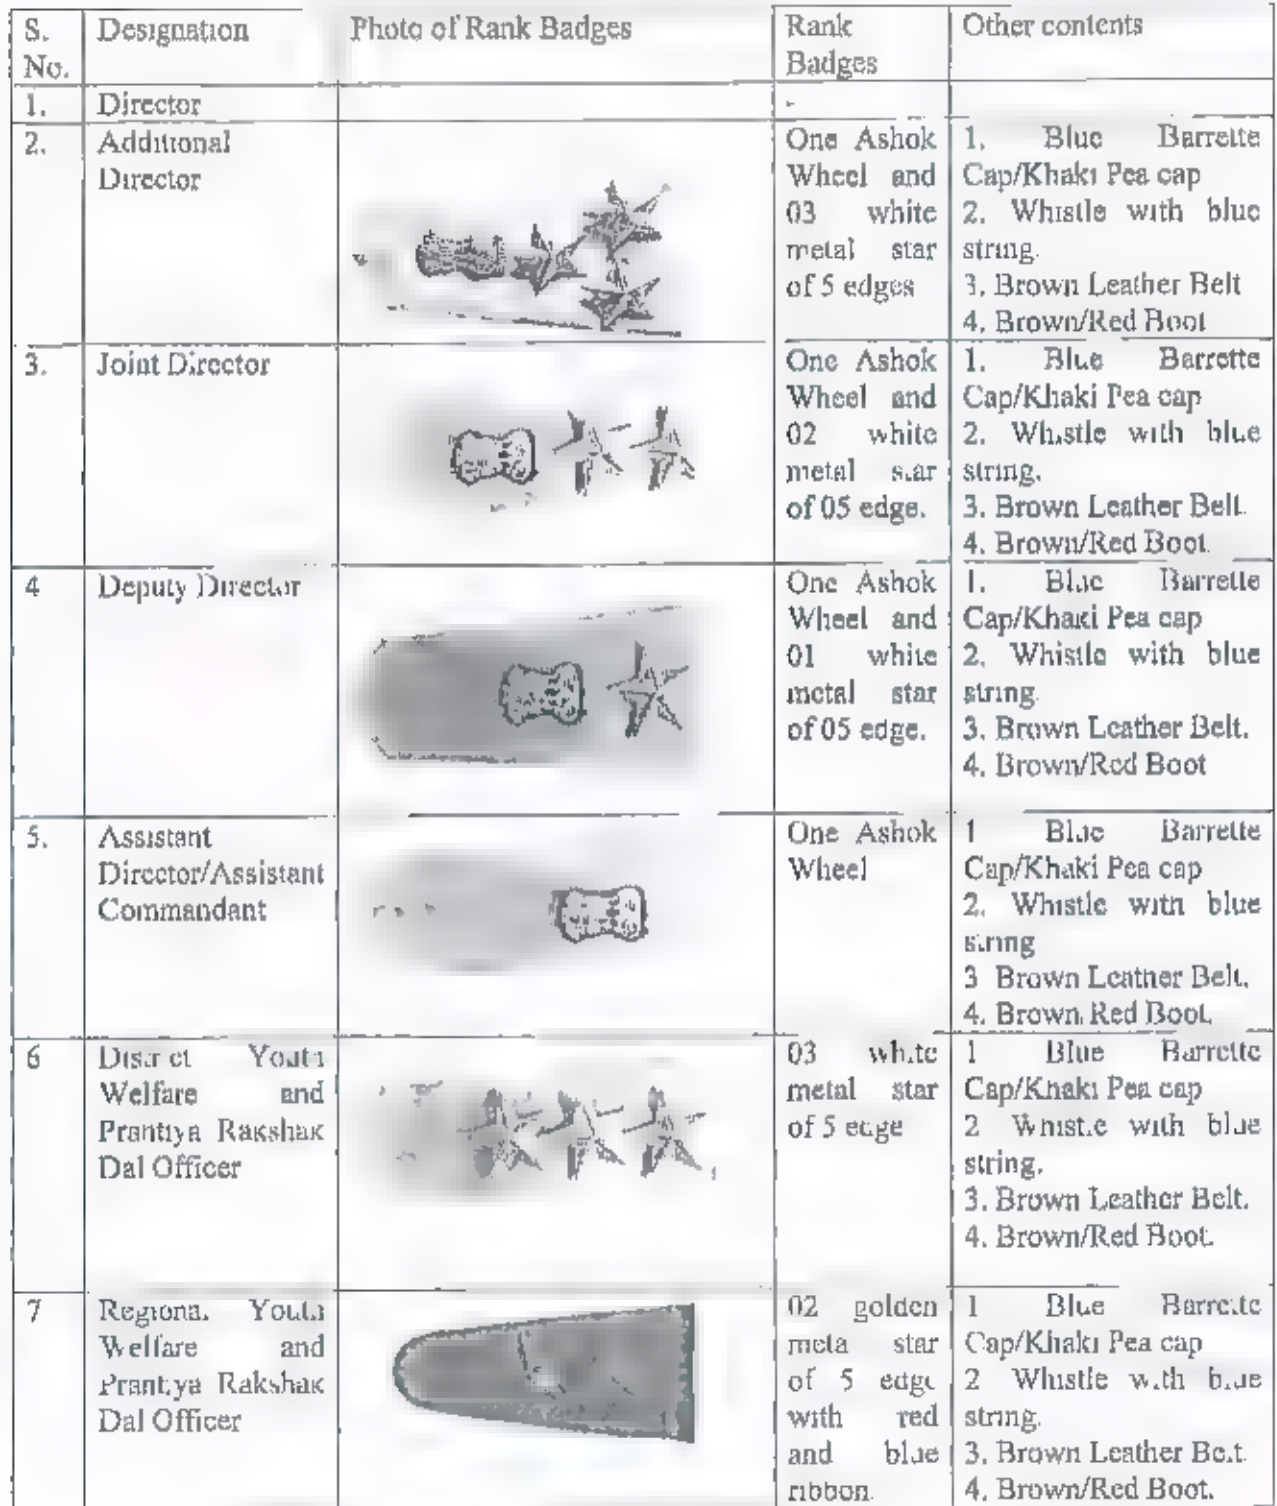 S. No.
Designation
Photo of Rank Badges
Rank Badges
Other contents
1.
Director
-
2.
Additional
Director
One Ashok
Wheel and
03 white
metal star
of 5 edges
1. Blue Barrette
Cap/Khaki Pea cap
2. Whistle with blue
string.
3. Brown Leather Belt
4. Brown/Red Boot
3.
Joint Director
One Ashok
Wheel and
02 white
metal star
of 05 edge.
1. Blue Barrette
Cap/Khaki Pea cap
2. Whistle with blue
string.
3. Brown Leather Belt.
4. Brown/Red Boot.
4
Deputy Director
One Ashok
Wheel and
01 white
metal star
of 05 edge.
1. Blue Barrette
Cap/Khaki Pea cap
2. Whistle with blue
string.
3. Brown Leather Belt.
4. Brown/Red Boot
5.
Assistant
Director/Assistant
Commandant
One Ashok
Wheel
1 Blue Barrette
Cap/Khaki Pea cap
2. Whistle with blue
string
3 Brown Leather Belt.
4. Brown Red Boot.
6
District Youth
Welfare and
Prantiya Rakshak
Dal Officer
03 white
metal star
of 5 edge
1 Blue Barrette
Cap/Khaki Pea cap
2 Whistle with blue
string.
3. Brown Leather Belt.
4. Brown/Red Boot.
7
Regional Youth
Welfare and
Prantiya Rakshak
Dal Officer
02 golden
meta star
of 5 edge
with red
and blue
ribbon.
1 Blue Barrette
Cap/Khaki Pea cap
2 Whistle with blue
string.
3. Brown Leather Belt
4. Brown/Red Boot.